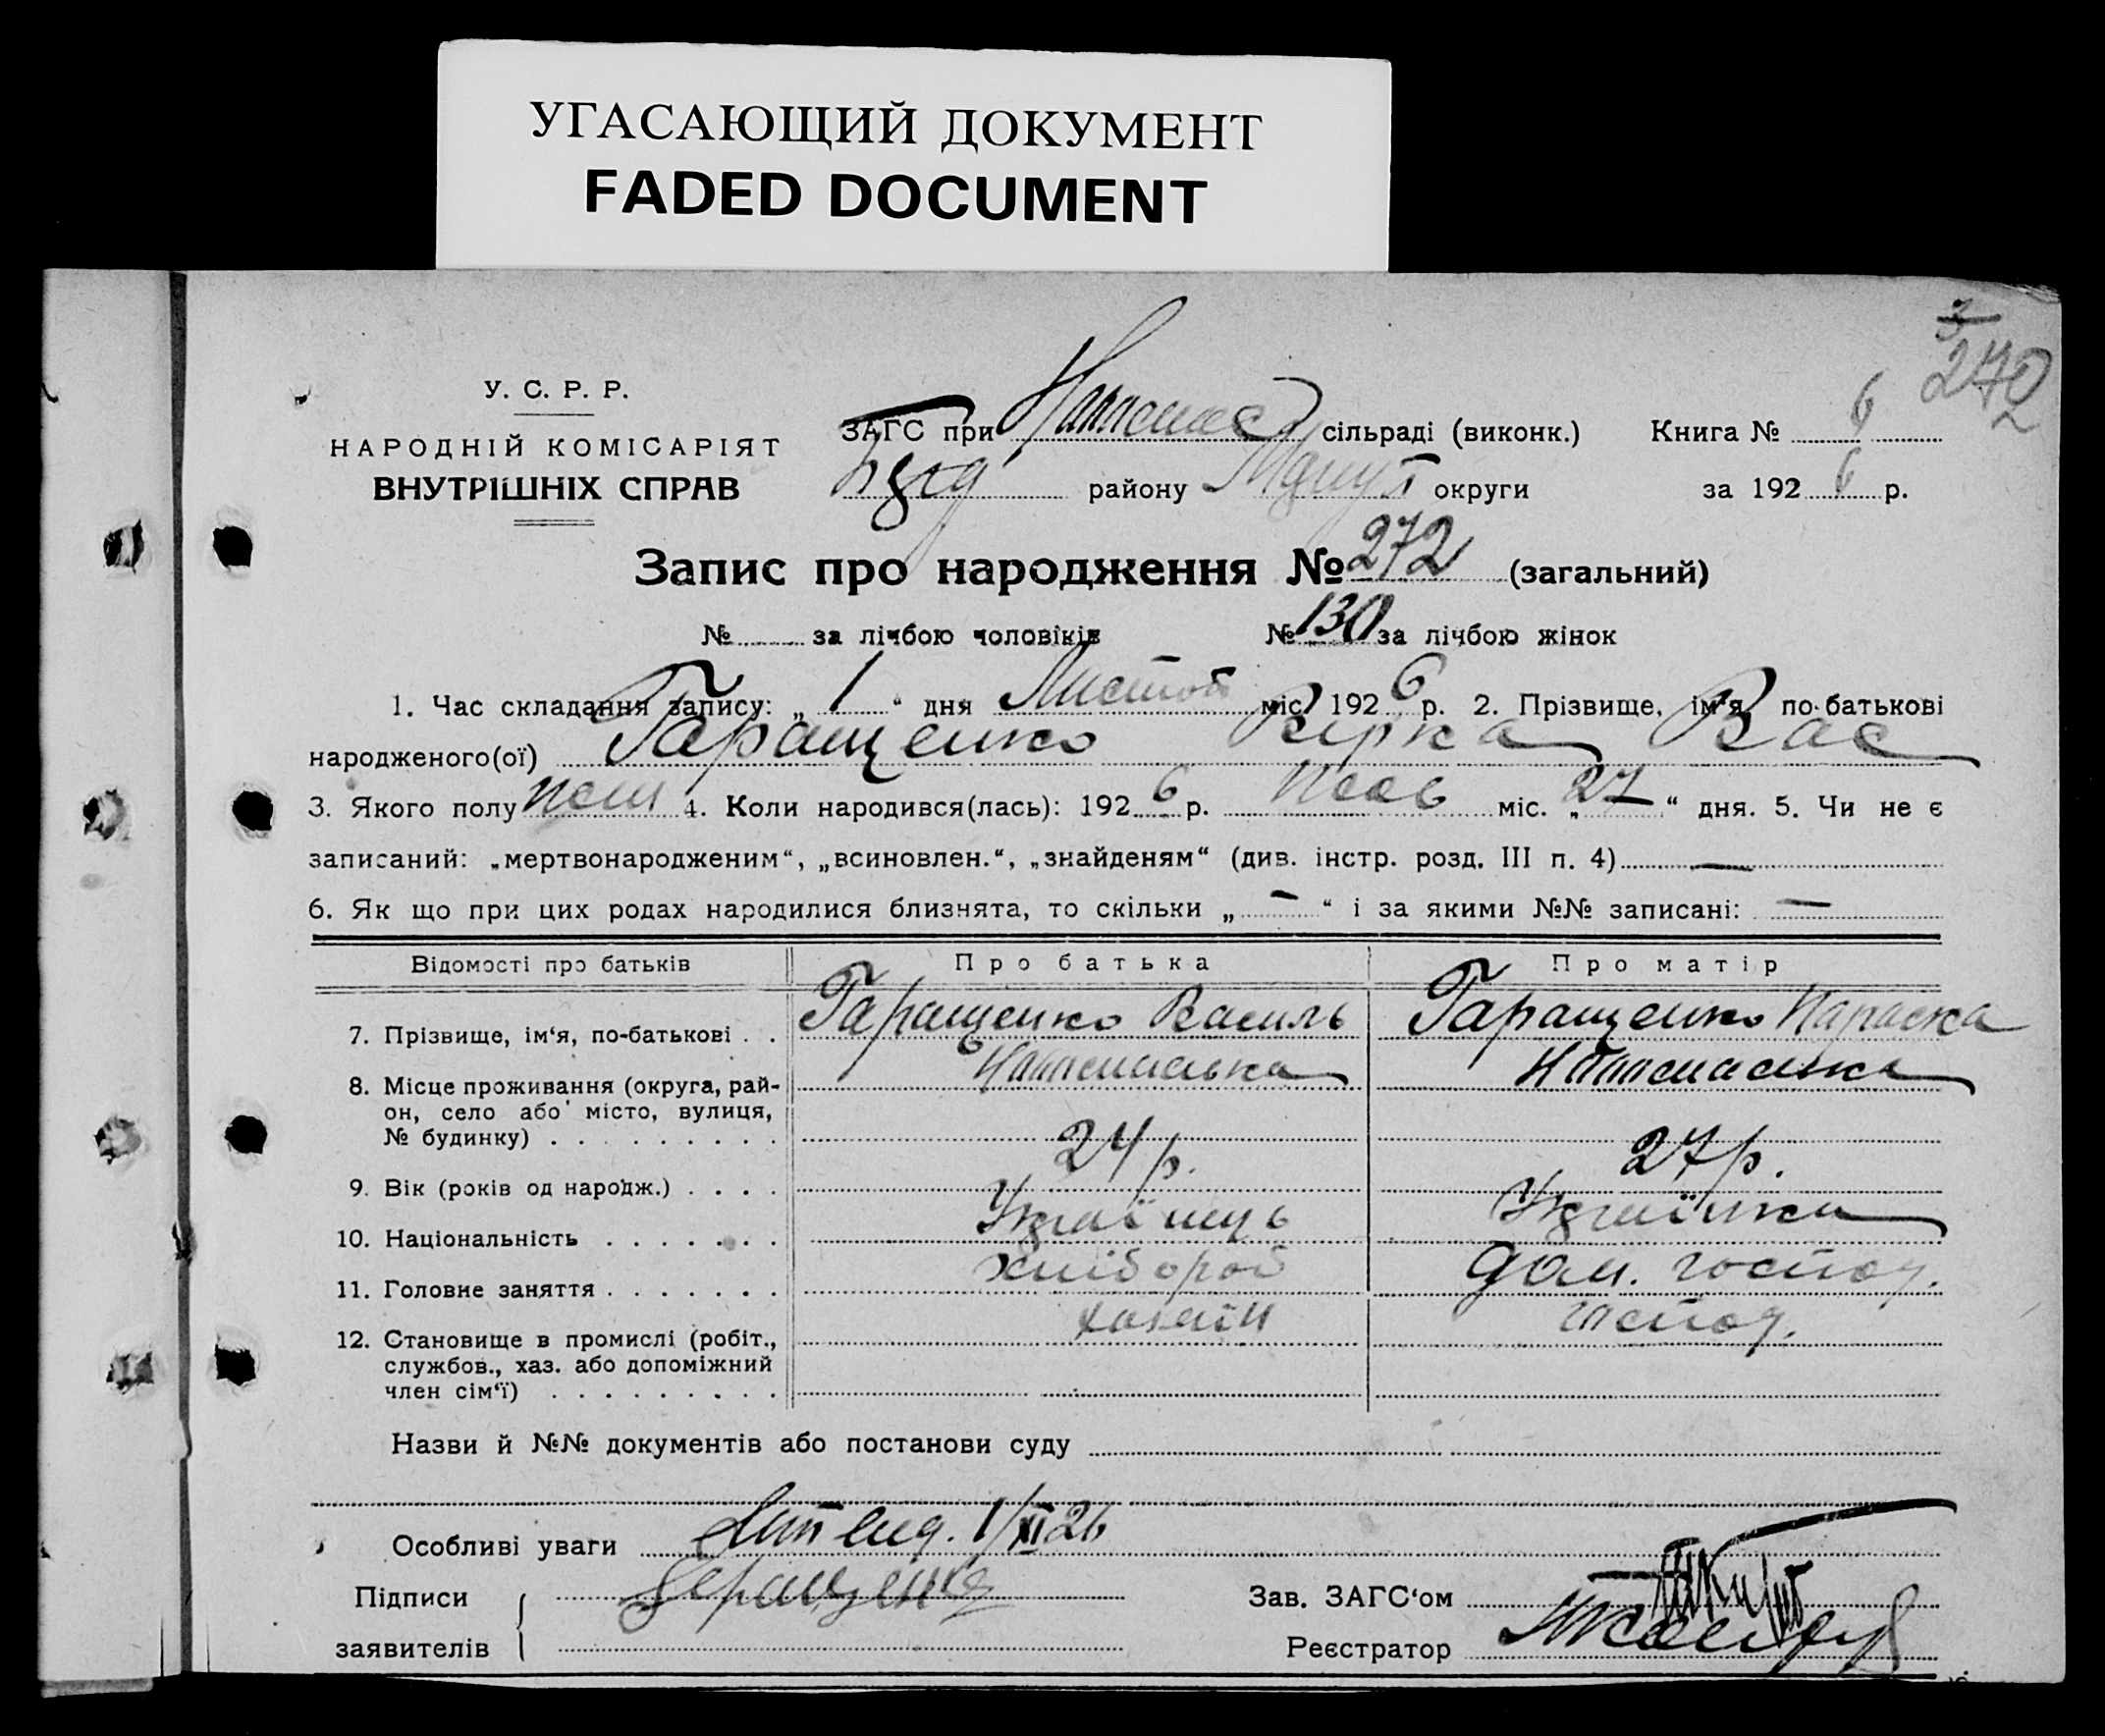 УГАСАЮЩИЙ ДОКУМЕНТ
FADED DOCUMENT
3
272
У. С. Р. Р.
НАРОДНІЙ КОМІСАРІЯТ
ВНУТРІШНІХ СПРАВ
ЗАГС при сільраді (виконк.) Книга № 6
району округи за 1926 р.
Запис про народження № 272 (загальний)
№ за лічбою чоловіків № 130 за лічбою жінок
1. Час складання запису: „ 1 “ дня Листоп міс. 1926 р. 2. Прізвище, ім'я, по-батькові
народженого(ої) Гаращенко Вірка Вас
3. Якого полу жен 4. Коли народився(лась): 1926 р. Жов міс. „ 27 “ дня. 5. Чи не є
записаний: „мертвонародженим“, „всиновлен.“, „знайденям“ (див. інстр. розд. III п. 4) —
6. Як що при цих родах народилися близнята, то скільки „ — “ і за якими №№ записані: —
Відомості про батьків Про батька Про матір
7. Прізвище, ім‘я, по-батькові . . Гаращенко Василь Гаращенко Параска
8. Місце проживання (округа, рай-
он, село або місто, вулиця,
№ будинку) . . . . . . . . .
9. Вік (років од народж.) . . . . 24 р. 27 р.
10. Національність . . . . . . . Українець Українка
11. Головне заняття . . . . . . . хлібороб дом. господ.
12. Становище в промислі (робіт., хазяїн господ.
службов., хаз. або допоміжний
член сім‘ї) . . . . . . . . .
Назви й №№ документів або постанови суду
Особливі уваги 1/XI 26
Підписи Геращенко Зав. ЗАГС‘ом
заявителів Реєстратор